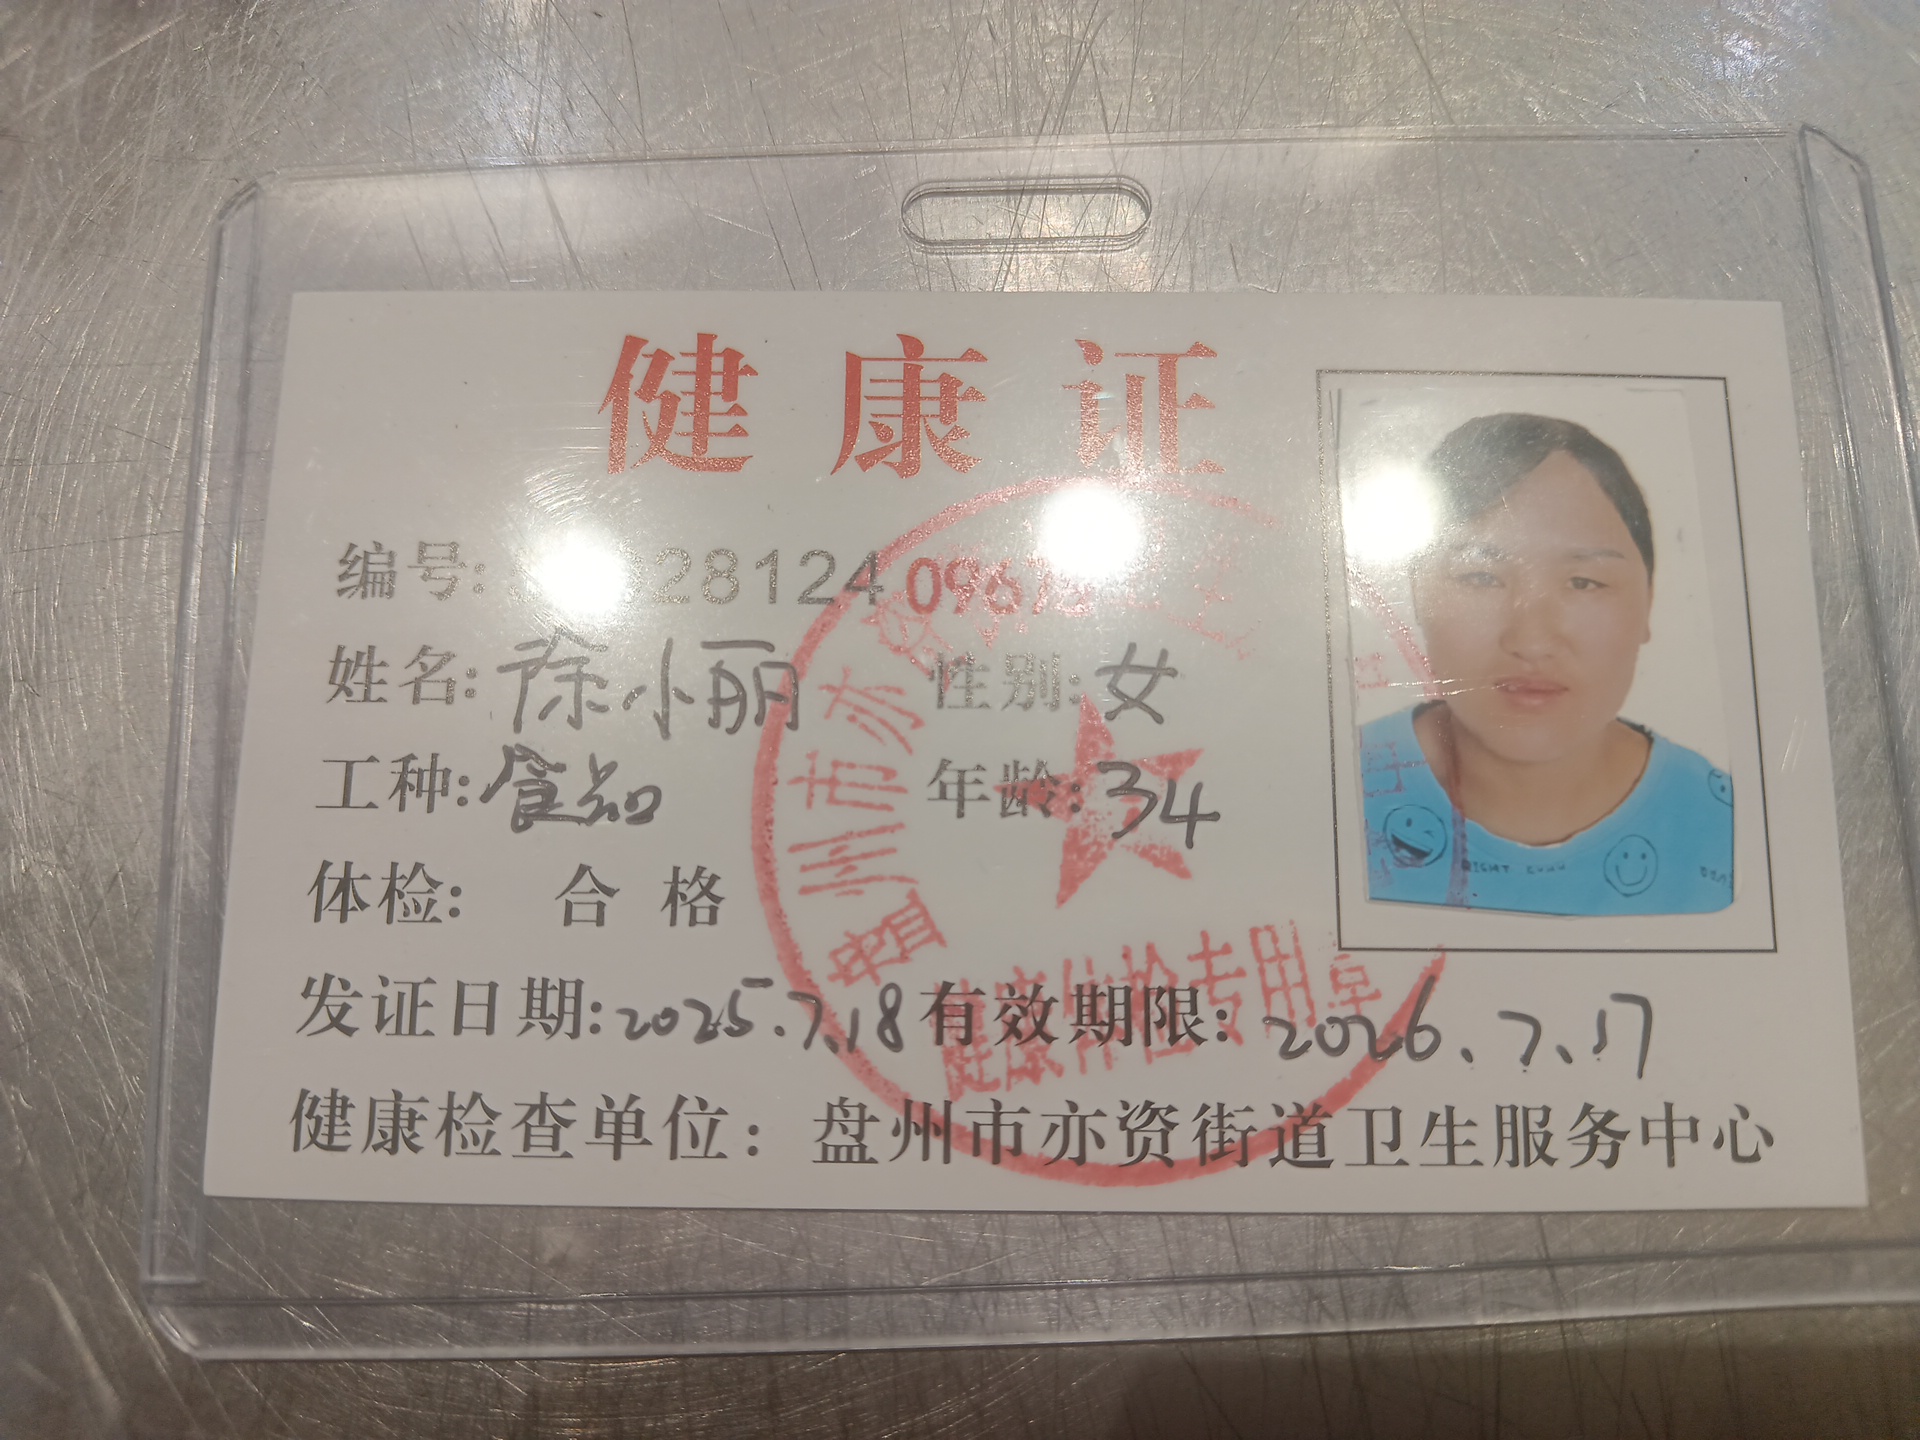 健康证
编号: 28124 0967
姓名: 徐小丽 性别: 女
工种: 食品 年龄: 34
体检: 合格
发证日期: 2025.7.18 有效期限: 2026.7.17
健康检查单位: 盘州市亦资街道卫生服务中心
州市亦
健康体检专用章